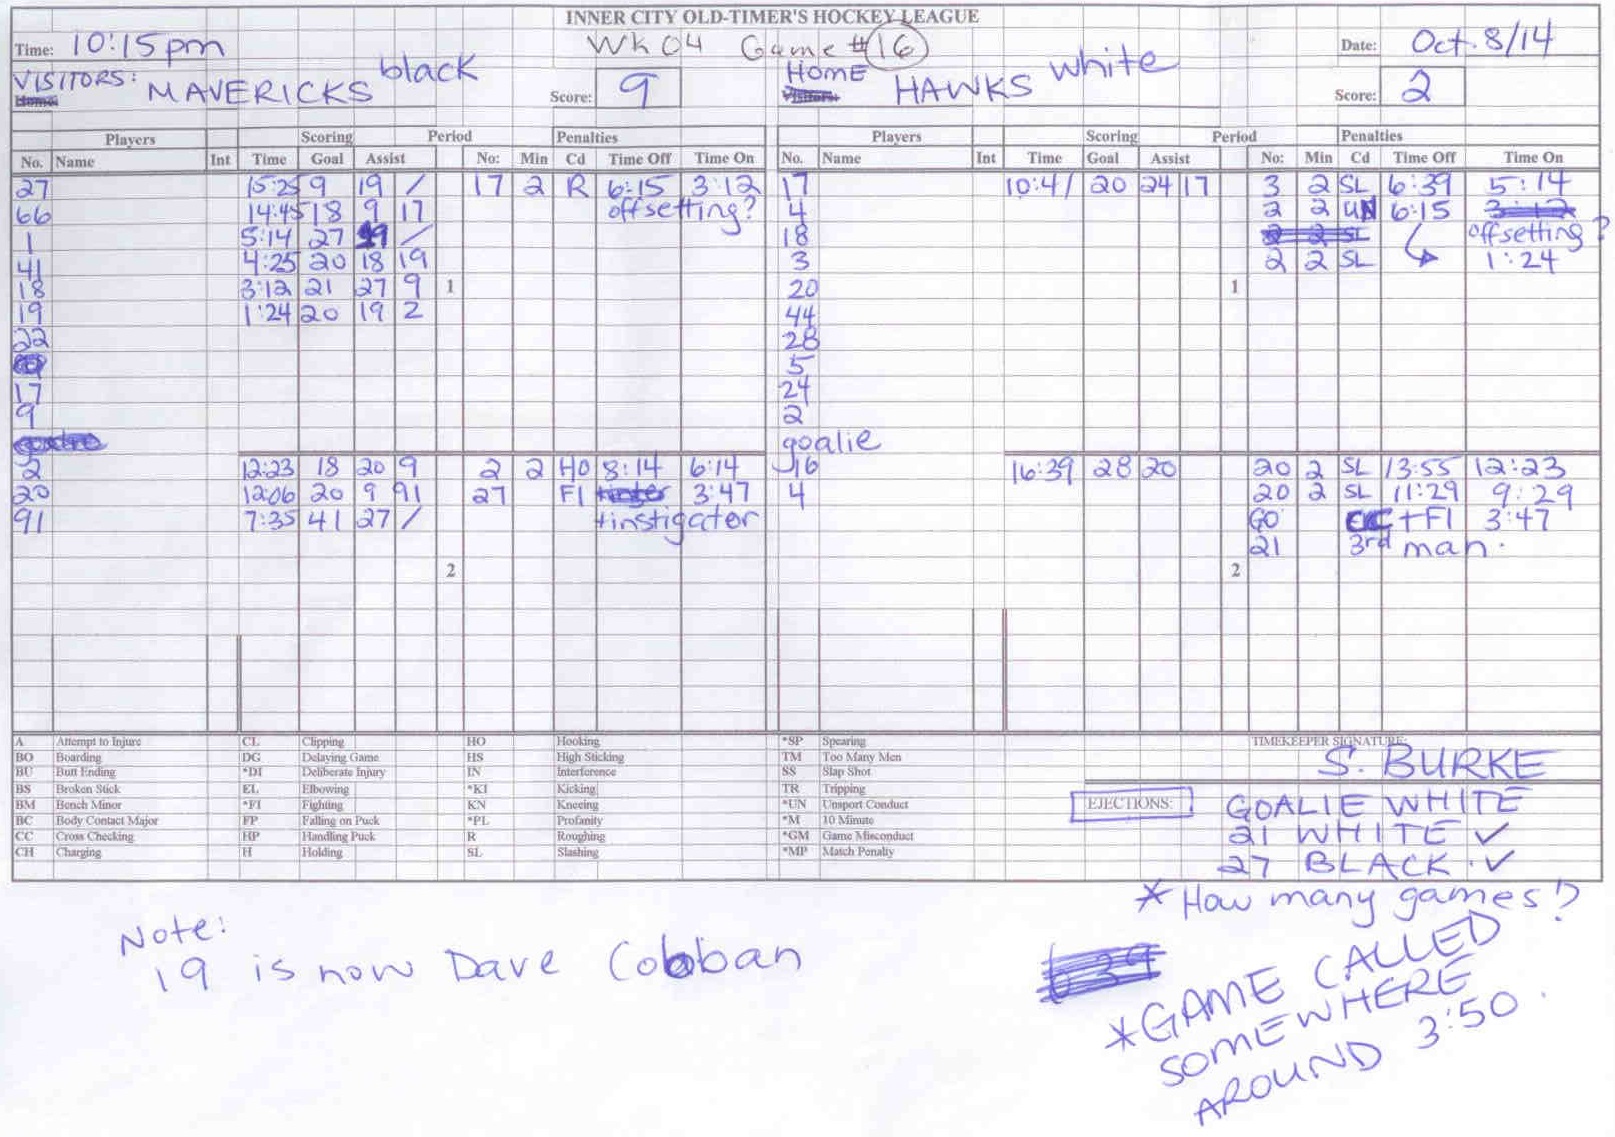 INNER CITY OLD-TIMER'S HOCKEY LEAGUE
Time: 10:15pm WK 04 Game #16 Date: Oct. 8/14
VISITORS: MAVERICKS black Score: 9 HOME HAWKS white Score: 2
Home: Visitors:
Players Scoring Period Penalties Players Scoring Period Penalties
No. Name Int Time Goal Assist No: Min Cd Time Off Time On No. Name Int Time Goal Assist No: Min Cd Time Off Time On
27 15:25 9 19 / 17 2 R 6:15 3:12 17 10:41 20 24 17 3 2 SL 6:39 5:14
66 14:45 18 9 17 offsetting? 4 2 2 UN 6:15 3:12
1 5:14 27 / 18 2 2 SL offsetting?
41 4:25 20 18 19 3 2 2 SL 1:24
18 3:12 21 27 9 1 20 1
19 1:24 20 19 2 44
22 28
5
17 24
9 2
goalie
2 12:23 18 20 9 2 2 HO 8:14 6:14 16 16:39 28 20 20 2 SL 13:55 12:23
20 12:06 20 9 91 27 FI 3:47 4 20 2 SL 11:29 9:29
91 7:35 41 27 / +instigator GO +FI 3:47
21 3rd man.
2 2
A Attempt to Injure CL Clipping HO Hooking *SP Spearing TIMEKEEPER SIGNATURE:
BO Boarding DG Delaying Game HS High Sticking TM Too Many Men S. BURKE
BU Butt Ending *DI Deliberate Injury IN Interference SS Slap Shot
BS Broken Stick EL Elbowing *KI Kicking TR Tripping
BM Bench Minor *FI Fighting KN Kneeing *UN Unsport Conduct EJECTIONS: GOALIE WHITE
BC Body Contact Major FP Falling on Puck *PL Profanity *M 10 Minute
CC Cross Checking HP Handling Puck R Roughing *GM Game Misconduct 21 WHITE ✓
CH Charging H Holding SL Slashing *MP Match Penalty 27 BLACK ✓
* How many games?
Note:
19 is now Dave Cobban
*GAME CALLED
SOMEWHERE
AROUND 3:50.